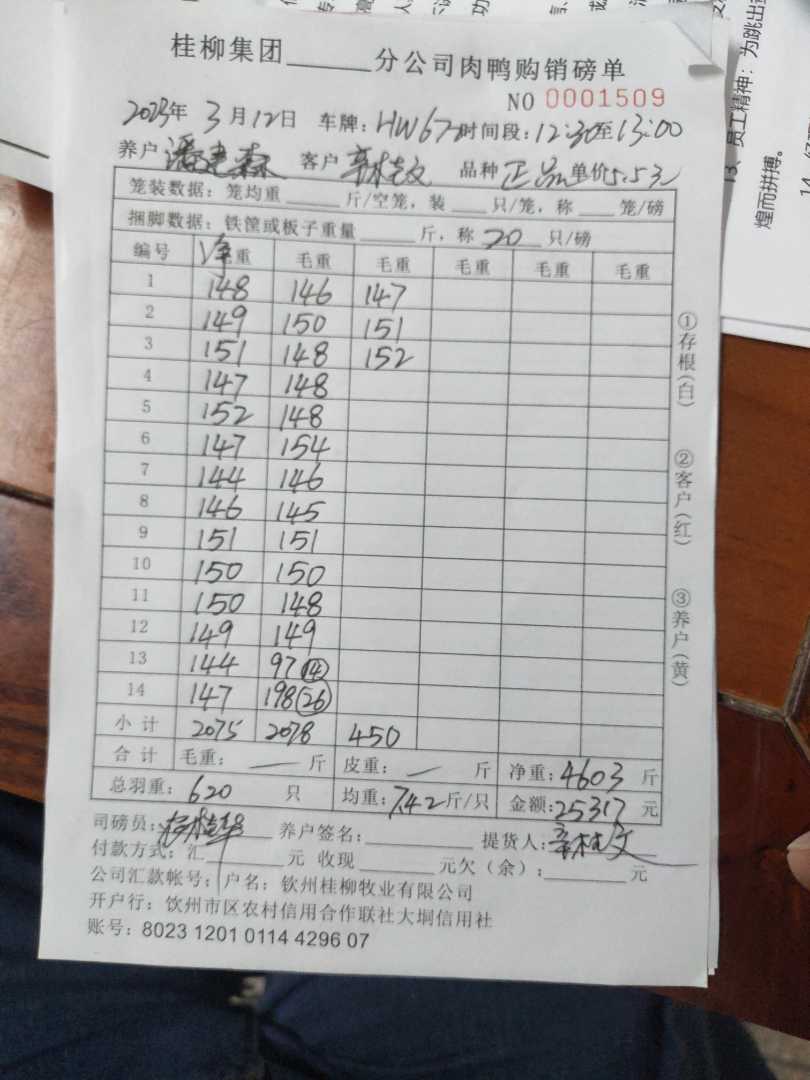 桂柳集团______分公司肉鸭购销磅单
NO 0001509
2023年 3月12日 车牌：HW67 时间段：12:30至13:00
养户 潘建森 客户 辛桂文 品种 正品 单价5.53
笼装数据：笼均重____斤/空笼，装___只/笼，称___笼/磅
捆脚数据：铁筐或板子重量_____斤，称 20 只/磅
编号 净重 毛重 毛重 毛重 毛重 毛重
1 148 146 147
2 149 150 151
3 151 148 152
4 147 148
5 152 148
6 147 154
7 144 146
8 146 145
9 151 151
10 150 150
11 150 148
12 149 149
13 144 97(14)
14 147 198(26)
小计 2075 2078 450
合计 毛重：— 斤 皮重：— 斤 净重：4603 斤
总羽重：620 只 均重：7.42斤/只 金额：25317 元
司磅员： 养户签名：________ 提货人：辛桂文
付款方式：汇________元 收现________元欠（余）：________元
公司汇款帐号：户名：钦州桂柳牧业有限公司
开户行：饮州市区农村信用合作联社大垌信用社
账号：8023 1201 0114 4296 07
①存根(白)
②客户(红)
③养户(黄)
13、员工精神：为跳出
煌而拼搏。